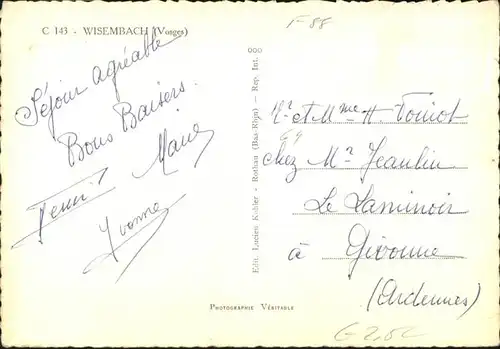 C 143 - WISEMBACH (Vosges)
F 88
Séjour agréable
Bons Baisers.
Henri
Yvonne
Edit. Lucien Kohler - Rothau (Bas-Rhin) — Rep. Int. 000
Mr et Mme H. Toiniot
chez Mr Jeanlin
Le Laminoir
à Givonne
(Ardennes)
PHOTOGRAPHIE VÉRITABLE